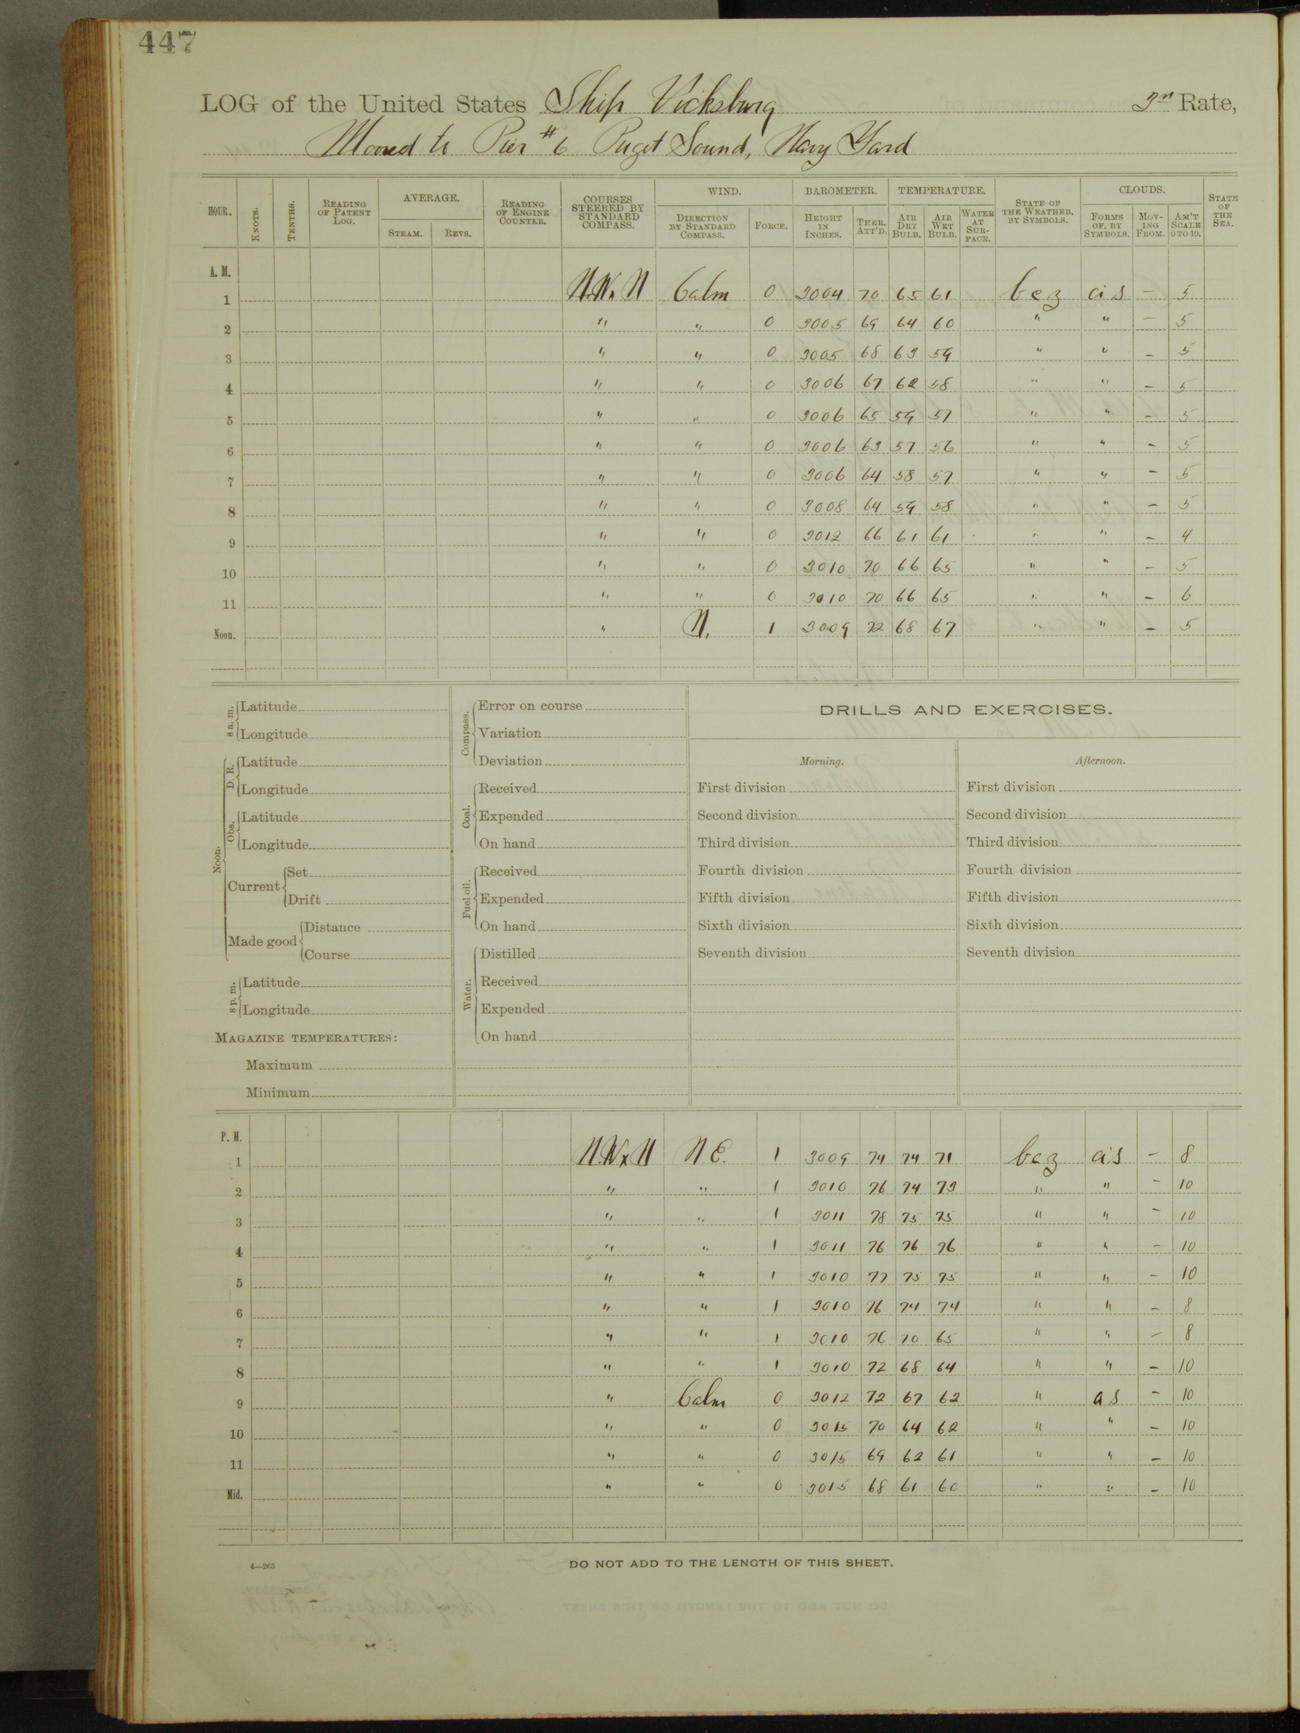 447
LOG of the United States Ship Vicksburg 3rd Rate,
Moored to Pier #6 Puget Sound, Navy Yard
HOUR. KNOTS. TENTHS. READING OF PATENT LOG. AVERAGE. STEAM. REVS. READING OF ENGINE COUNTER. COURSES STEERED BY STANDARD COMPASS. WIND. DIRECTION BY STANDARD COMPASS. FORCE. BAROMETER. HEIGHT IN INCHES. THER. ATT'D. TEMPERATURE. AIR DRY BULB. AIR WET BULB. WATER AT SURFACE. STATE OF THE WEATHER, BY SYMBOLS. CLOUDS. FORMS OF, BY SYMBOLS. MOVING FROM. AM'T SCALE 0 TO 10. STATE OF THE SEA.
A. M.
1 N.W.xN Calm 0 3004 70 65 61 bcz cis - 5
2 " " 0 3005 69 64 60 " " - 5
3 " " 0 3005 68 63 59 " " - 5
4 " " 0 3006 67 62 58 " " - 5
5 " " 0 3006 65 59 57 " " - 5
6 " " 0 3006 63 57 56 " " - 5
7 " " 0 3006 64 58 57 " " - 5
8 " " 0 3008 64 59 58 " " - 5
9 " " 0 3012 66 61 61 " " - 4
10 " " 0 3010 70 66 65 " " - 5
11 " " 0 3010 70 66 65 " " - 6
Noon. " N. 1 3009 72 68 67 " " - 5
8 a. m. Latitude
Longitude
Noon. D. R. Latitude
Longitude
Obs. Latitude
Longitude
Current Set
Drift
Made good Distance
Course
8 p. m. Latitude
Longitude
MAGAZINE TEMPERATURES:
Maximum
Minimum
Compass. Error on course
Variation
Deviation
Coal. Received
Expended
On hand
Fuel oil. Received
Expended
On hand
Water. Distilled
Received
Expended
On hand
DRILLS AND EXERCISES.
Morning. Afternoon.
First division First division
Second division Second division
Third division Third division
Fourth division Fourth division
Fifth division Fifth division
Sixth division Sixth division
Seventh division Seventh division
P. M.
1 N.W.xN N.E. 1 3009 74 74 71 bcz cis - 8
2 " " 1 3010 76 74 73 " " - 10
3 " " 1 3011 78 75 75 " " - 10
4 " " 1 3011 76 76 76 " " - 10
5 " " 1 3010 77 75 75 " " - 10
6 " " 1 3010 76 74 74 " " - 8
7 " " 1 3010 76 70 65 " " - 8
8 " " 1 3010 72 68 64 " " - 10
9 " Calm 0 3012 72 67 62 " as - 10
10 " " 0 3015 70 64 62 " " - 10
11 " " 0 3015 69 62 61 " " - 10
Mid. " " 0 3015 68 61 60 " " - 10
4—265
DO NOT ADD TO THE LENGTH OF THIS SHEET.